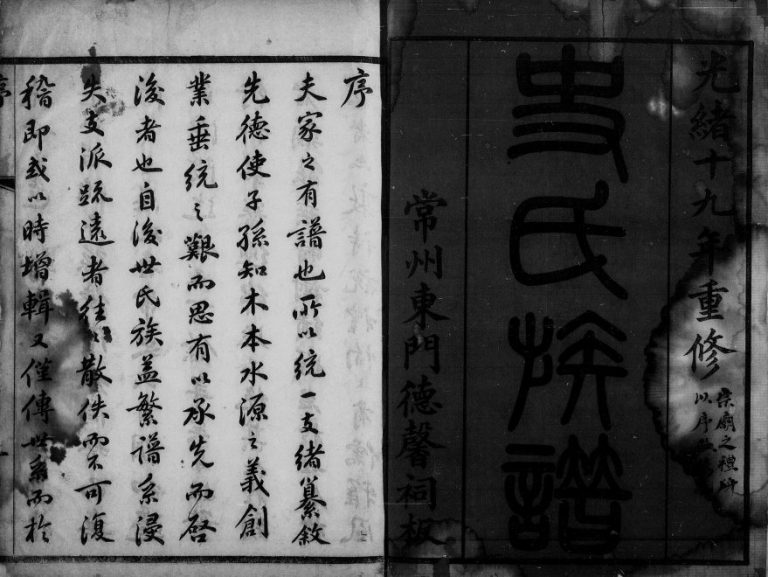 光緒十九年重修
宗廟之禮所
以序
史氏族譜
常州東門德馨祠板
序
夫家之有譜也所以統一支緒纂敘
先德使子孫知木本水源之義創
業垂統之艱而思有以承先而啓
後者也自後世氏族蓋繁譜系浸
失支派疏遠者往〻散佚而不可復
稽即或以時增輯又僅傳世系而於
序